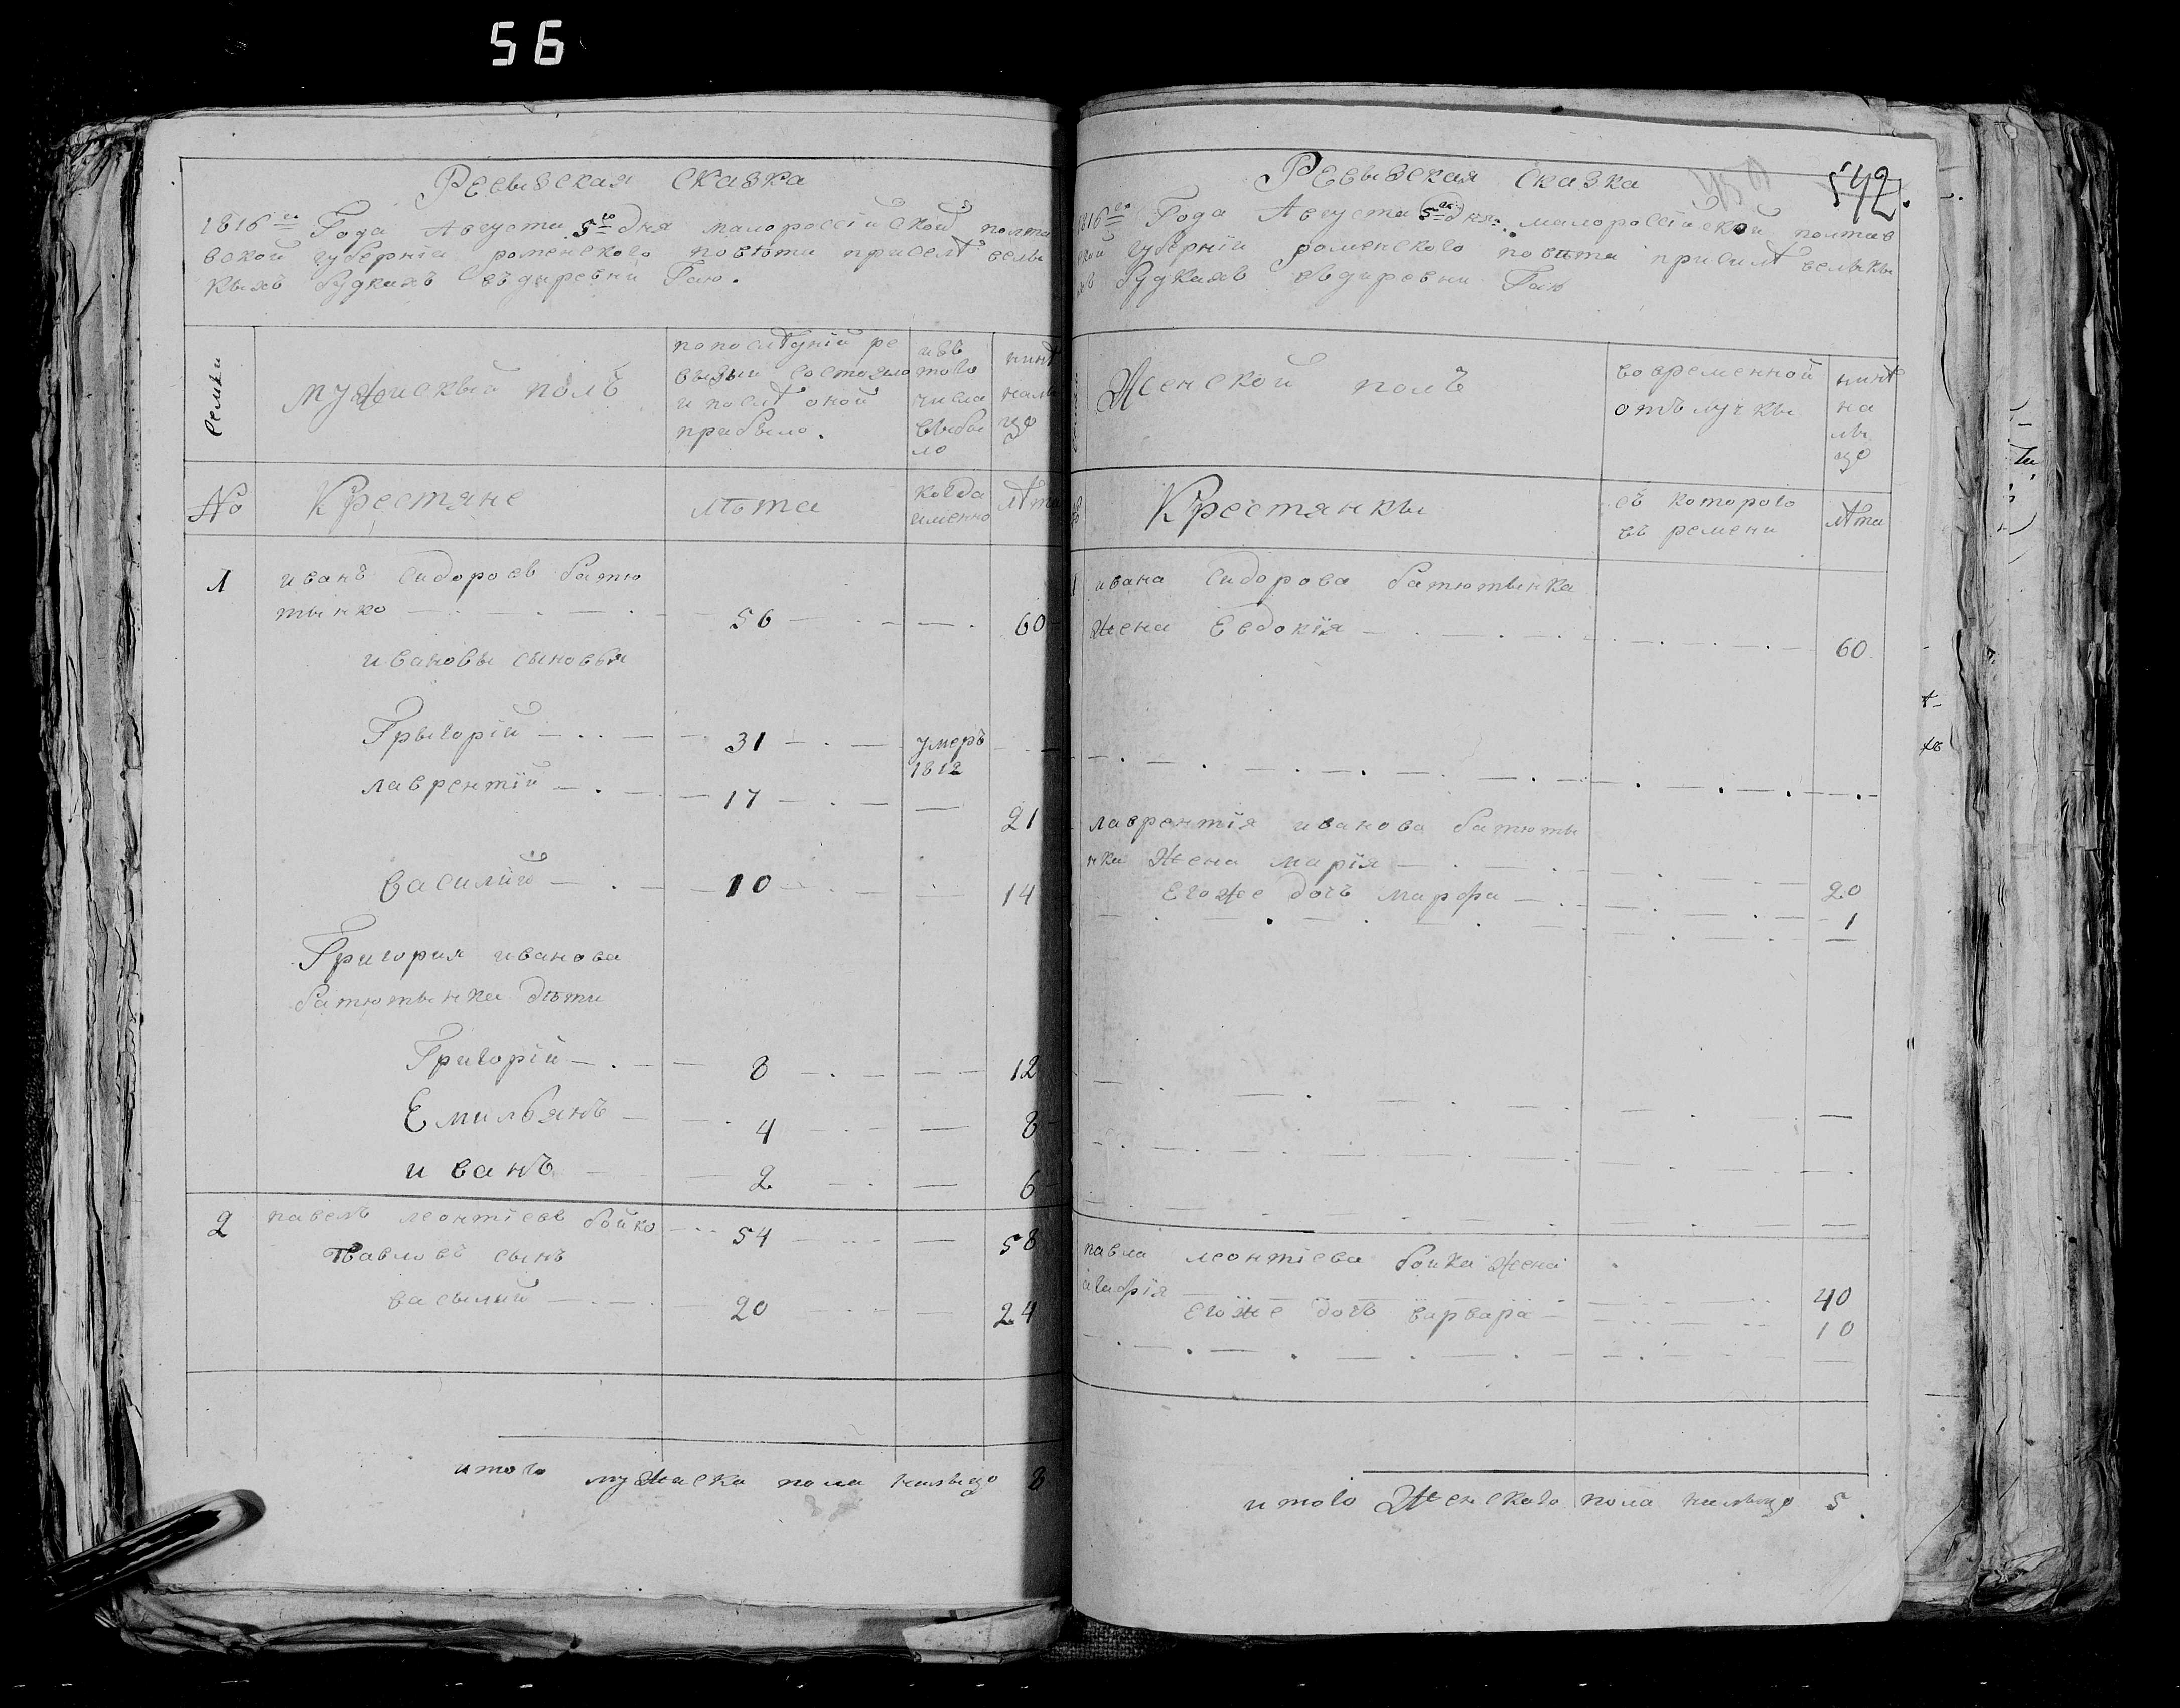 56
Ревызская сказка
1816го Года Августа 5го дня малороссійской полта
вской губерніи роменского повѣта приселѣ велы
кыхъ будкахъ въдыревни Гаю.
Семьи
мужискый полъ
попослѣдній ре
вызыи состояло
и послѣ оной
прибыло.
изъ
того
числа
выбы
ло
нинѣ
налы
цо
№
Крестяне
лѣта
когда
именно
лѣта
1
иванъ сидоровъ батю
тынко
56
60
ивановы сыновья
Грыгорій
31
умеръ
1812
лаврентій
17
21
василий
10
14
Григория иванова
батютынка дѣти
Григорій
8
12
Емильянъ
4
8
иванъ
2
6
2
павелъ леонтіевъ бойко
54
58
Павловъ сынъ
васылий
20
24
итого мужиска пола налыцо 8
Ревызская сказка
542
1816го Года Августа 5го дня малороссійской полтав
ской губерніи роменского повѣта приселѣ велыкы
хъ будкахъ въдыревни Гаю
Женской полъ
вовременной
отълучкы
нинѣ
на
лы
цо
Крестянкы
съ которого
въ ремени
лѣта
1
ивана сидорова батютынка
жена Евдокія
60
лаврентія иванова батюты
нка жена марія
20
Егоже дочъ марфа
1
павла леонтіева бойка жена
агафія
40
Егоже дочъ варвара
10
итого Женскаго пола налыцо 5.